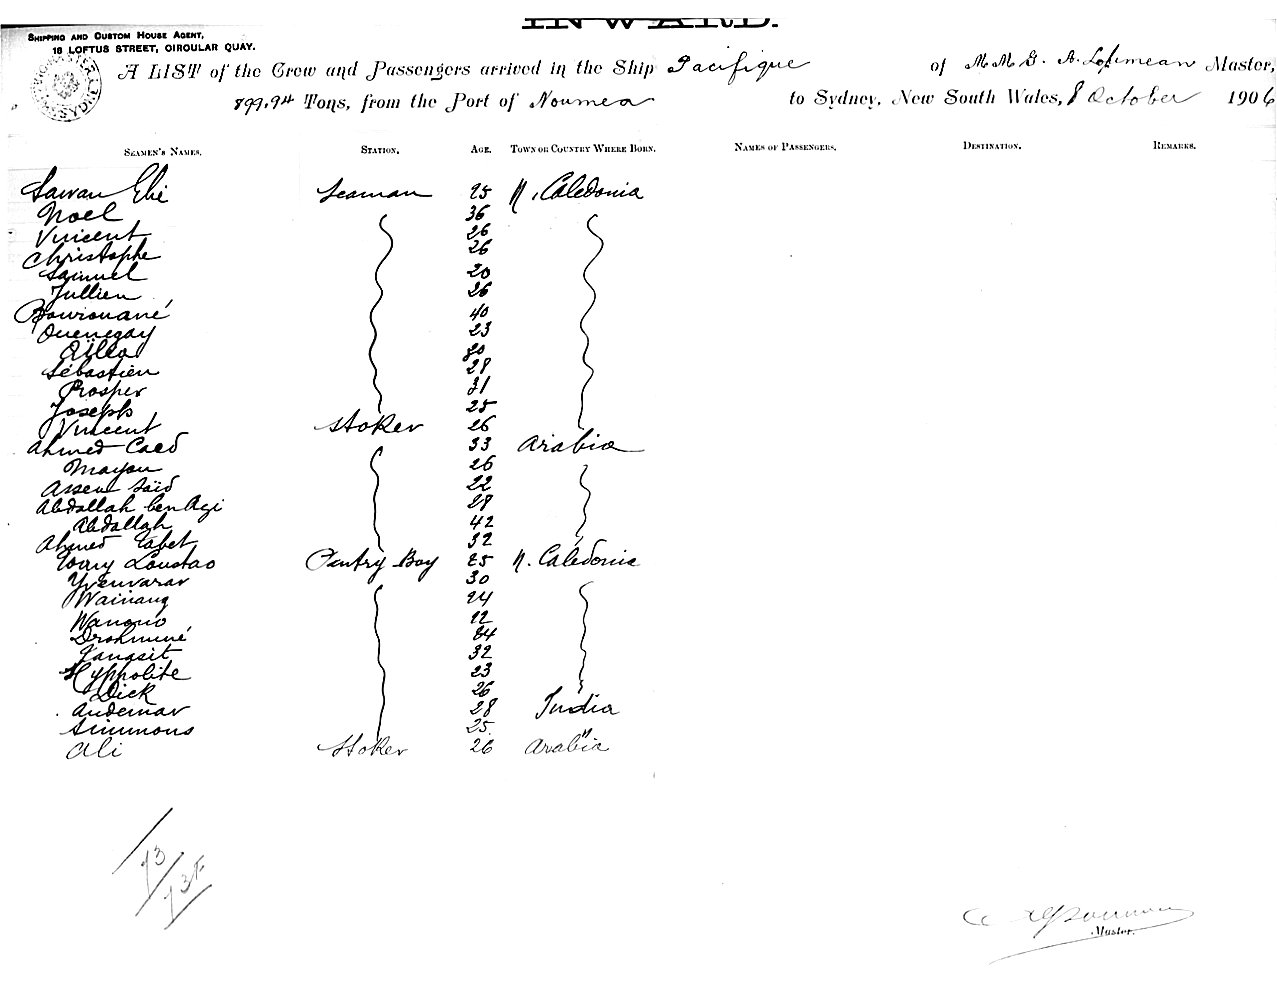 INWARD.
SHIPPING AND CUSTOM HOUSE AGENT,
16 LOFTUS STREET, CIRCULAR QUAY.
A LIST of the Crew and Passengers arrived in the Ship Pacifique of M M G. A. Master,
899.94 Tons, from the Port of Noumea to Sydney, New South Wales, 8 October 1906
SEAMEN'S NAMES. STATION. AGE. TOWN OR COUNTRY WHERE BORN. NAMES OF PASSENGERS. DESTINATION. REMARKS.
Sawan Elie Seaman 25 N. Caledonia
Noel 36
Vincent 26
Christophe 26
Samuel 20
Jullien 26
Bourouané 40
Ouenegay 23
Aïlea
Sébastien 28
Prosper 31
Joseph 25
Vincent Stoker 26
Ahmed Caed 33 Arabia
Mayou 26
Assen Saïd 22
Abdallah ben Agi 28
Abdallah 42
Ahmed Tabet 32
Loustao Pentry Boy 25 N. Calédonie
Yvenvarar 30
Wainang 24
Wanono 22
Drohmine 34
Tangsit 32
Hyppolite 23
Dick 26
Andemar 28 India
Simmons 25 "
Ali Stoker 26 Arabia
Master.